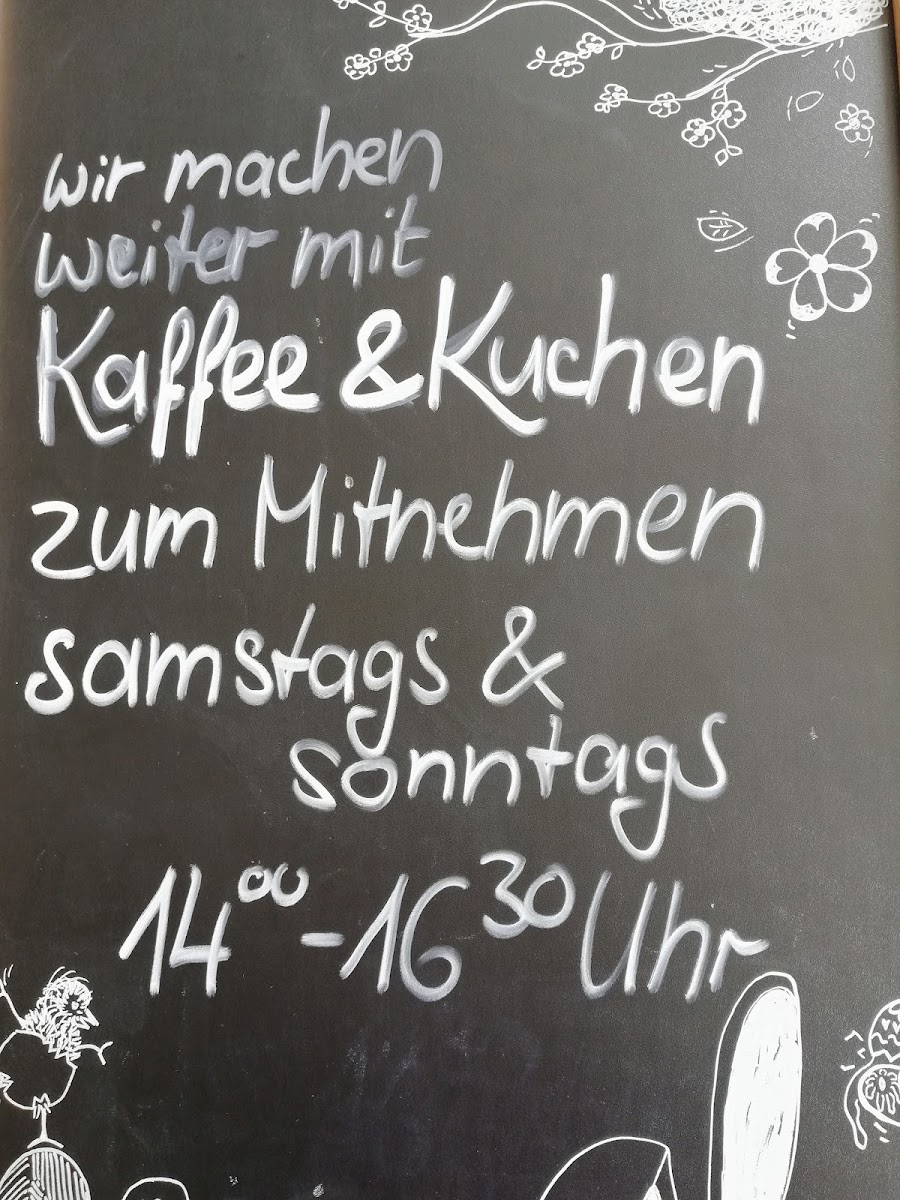 wir machen
weiter mit
Kaffee & Kuchen
zum Mitnehmen
samstags &
sonntags
14⁰⁰ - 16³⁰ Uhr